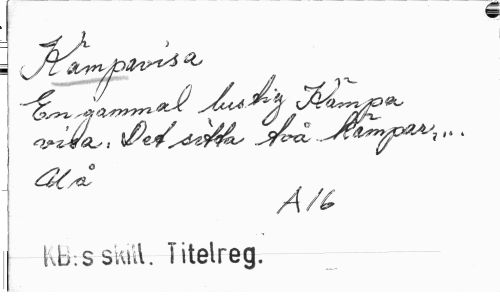 Kämpavisa
En gammal lustig Kämpa
visa. Det sitta två kämpar,...
U å
A 16
KB:s skill. Titelreg.